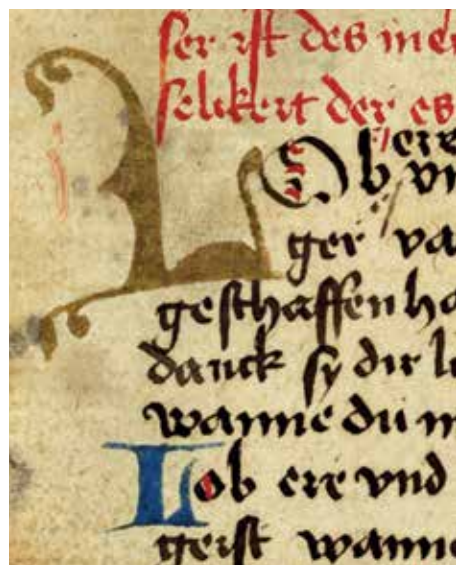 ser ist des men
selikeit der es
ere
LOb vn
ger va
geschaffen ha
danck sy dir l
wanne du m
Lob ere vnd
geist wanne